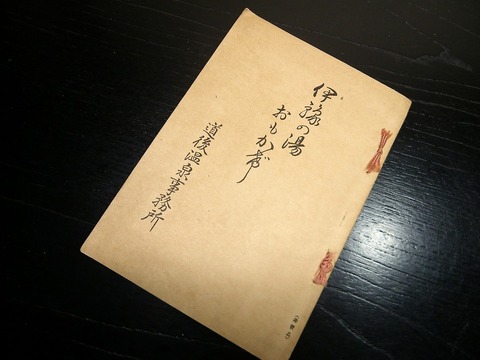 伊豫の湯
おもかげ
道後温泉事務所
(非賣品)